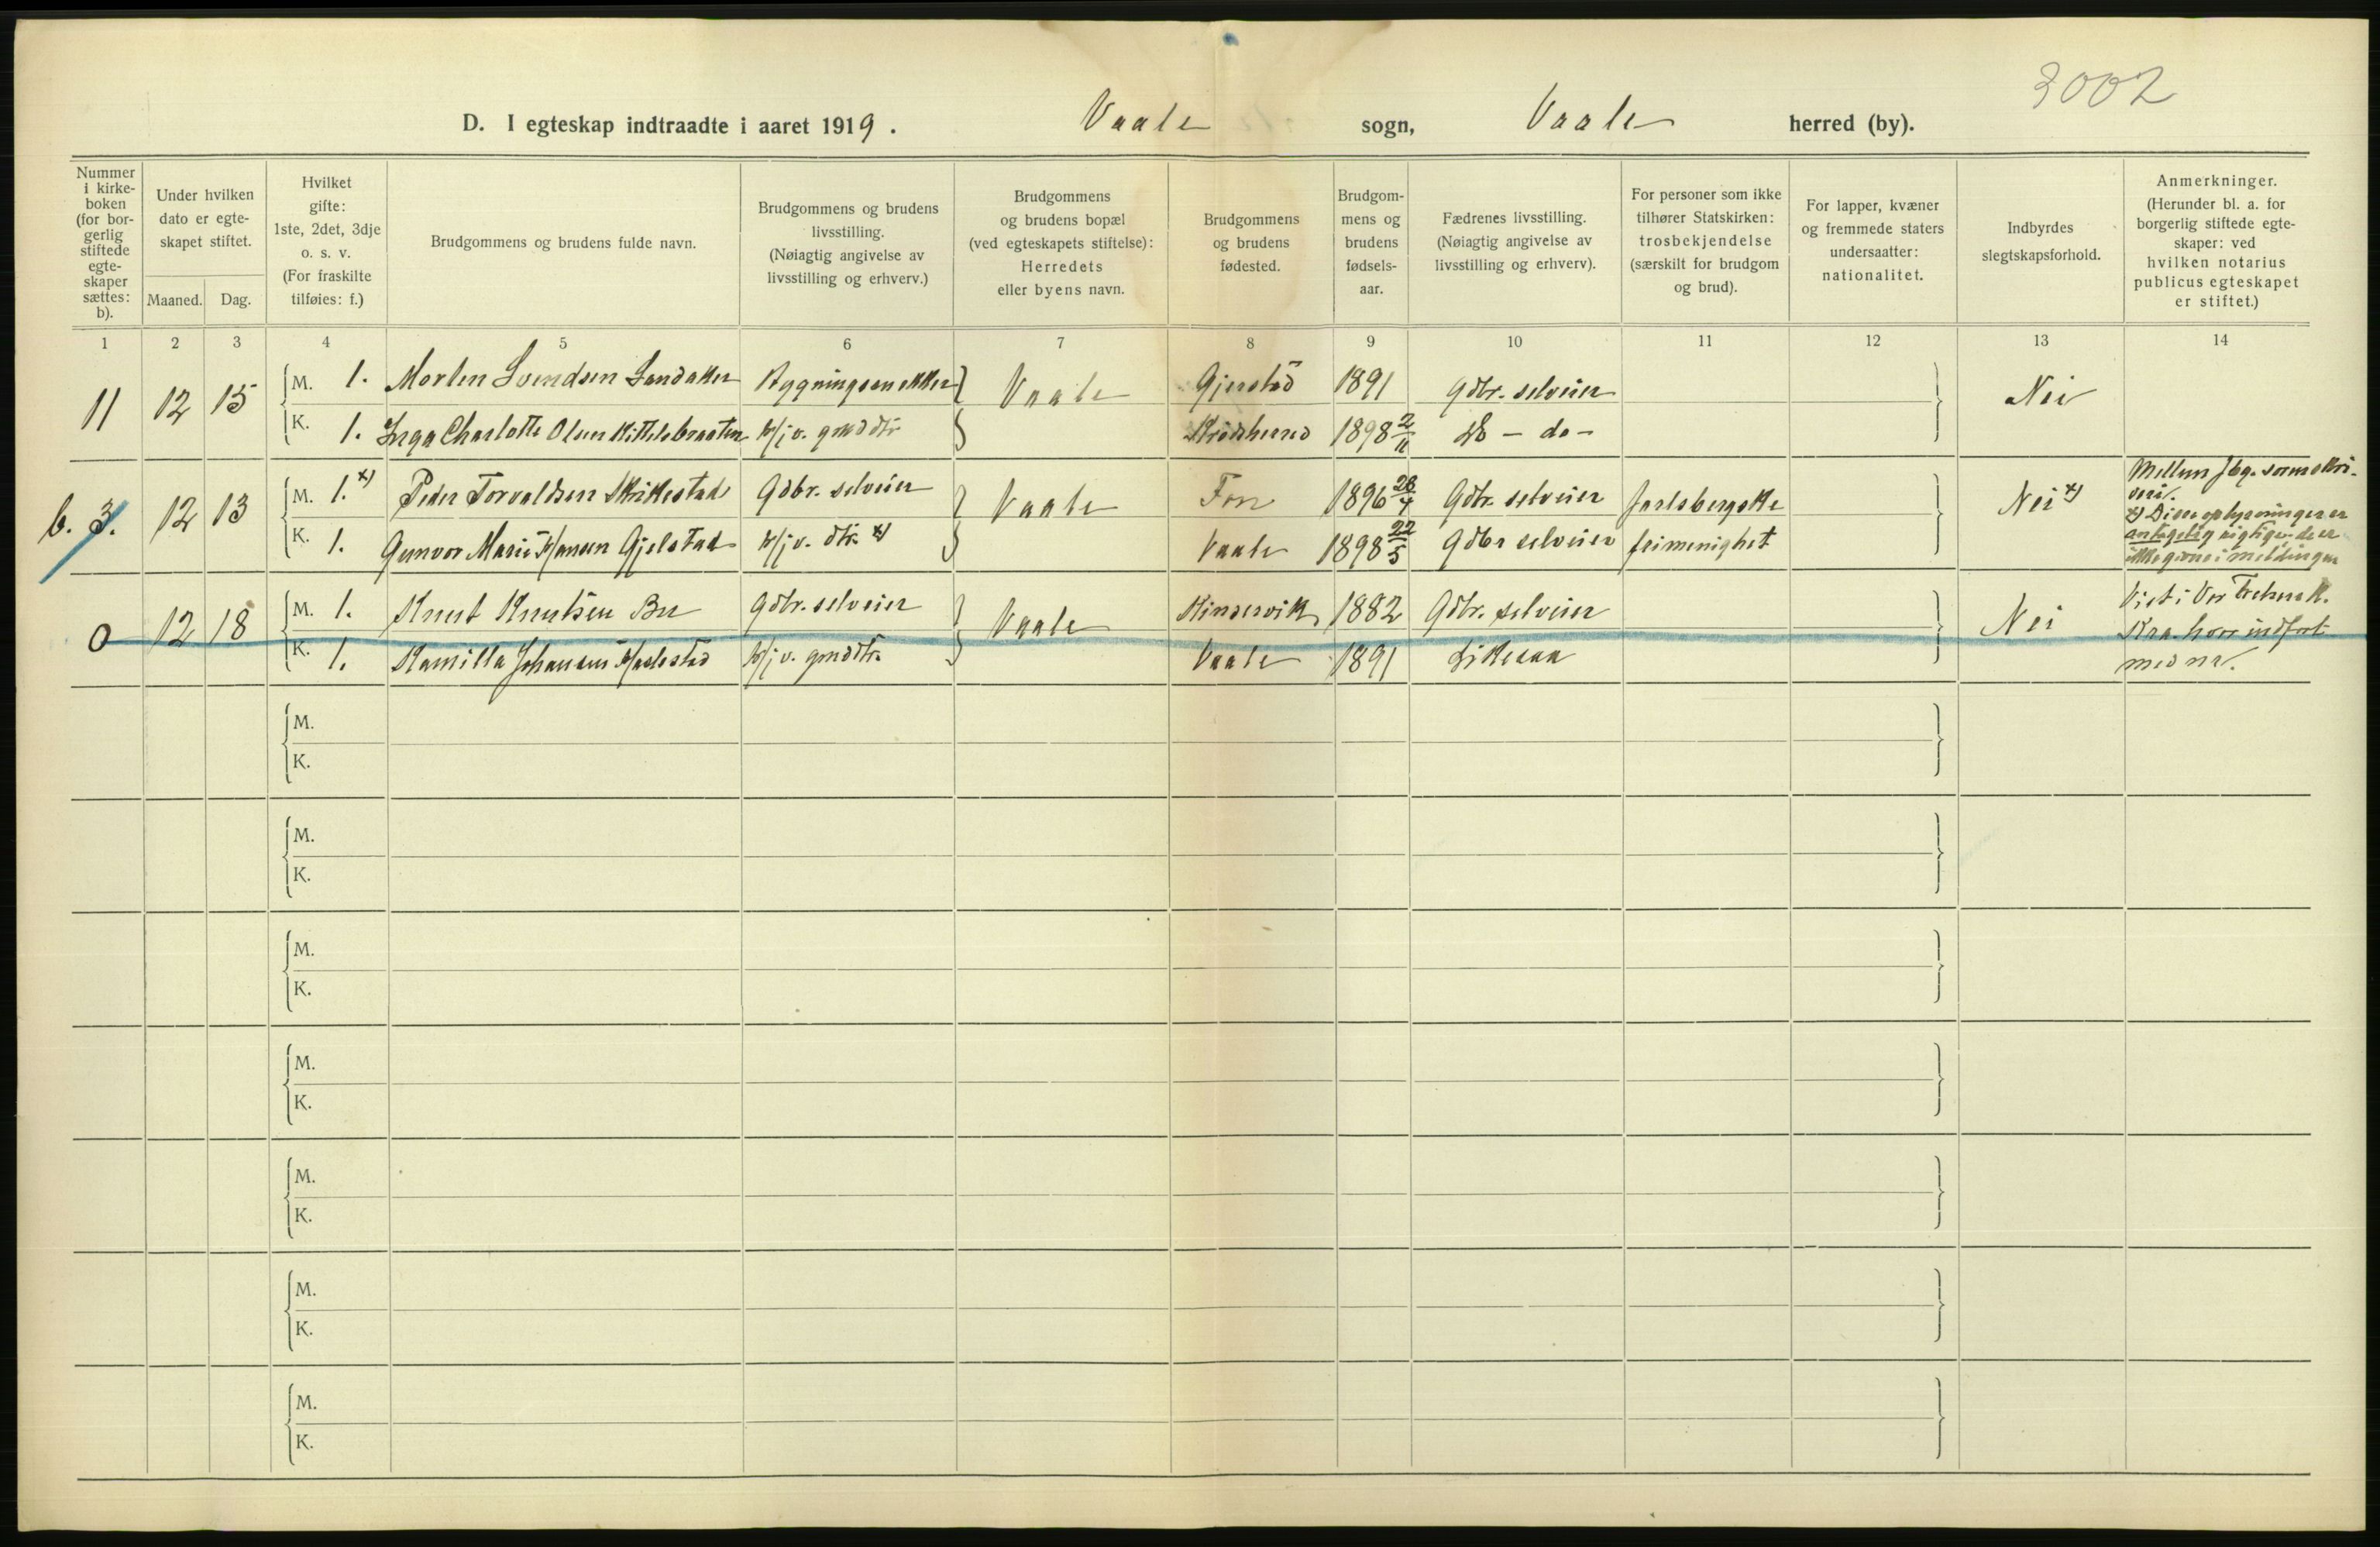 3002
D. I egteskap indtraadte i aaret 1919. Vaale sogn, Vaale herred (by).
Nummer i kirke- boken (for bor- gerlig stiftede egte- skaper sættes: b).
Under hvilken dato er egte- skapet stiftet.
Maaned. Dag.
Hvilket gifte: 1ste, 2det, 3dje o. s. v. (For fraskilte tilføies: f.)
Brudgommens og brudens fulde navn.
Brudgommens og brudens livsstilling. (Nøiagtig angivelse av livsstilling og erhverv.)
Brudgommens og brudens bopæl (ved egteskapets stiftelse): Herredets eller byens navn.
Brudgommens og brudens fødested.
Brudgom- mens og brudens fødsels- aar.
Fædrenes livsstilling. (Nøiagtig angivelse av livsstilling og erhverv).
For personer som ikke tilhører Statskirken: trosbekjendelse (særskilt for brudgom og brud).
For lapper, kvæner og fremmede staters undersaatter: nationalitet.
Indbyrdes slegtskapsforhold.
Anmerkninger. (Herunder bl. a. for borgerlig stiftede egte- skaper: ved hvilken notarius publicus egteskapet er stiftet.)
1 2 3 4 5 6 7 8 9 10 11 12 13 14
11 12 15 M. 1. Morten Svendsen Landaker Bygningssnekker Vaale Gjerstad 1891 Gdbr. selveier Nei
K. 1. Inga Charlotte Olsen Kittelsbraaten Hj v. gmddtr Krødsherred 1898 2/11 - do -
b. 3. 12 13 M. 1. x) Peder Torvaldsen Skikkestad Gdbr. selveier Vaale Fon 1896 28/4 Gdbr. selveier Jarlsbergske Nei x) Mellem Jbg. sorenskri-
veri.
K. 1. Gunvor Marie Hansen Gjelstad Hj v. dtr. x) Vaale 1898 22/5 Gdbr selveier frimenighet x) Disse oplysninger er
antagelig rigtige, de er
ikke givne i meldingen
0 12 18 M. 1. Knut Knutsen Bu Gdbr. selveier Vaale Kinservik 1882 Gdbr. selveier Nei Viet i Vor Frelsers k.
Kra. hvor indført
K. 1. Kamilla Johansen Haslestad Hj v. gmddtr. Vaale 1891 Likesaa med nr.
M.
K.
M.
K.
M.
K.
M.
K.
M.
K.
M.
K.
M.
K.